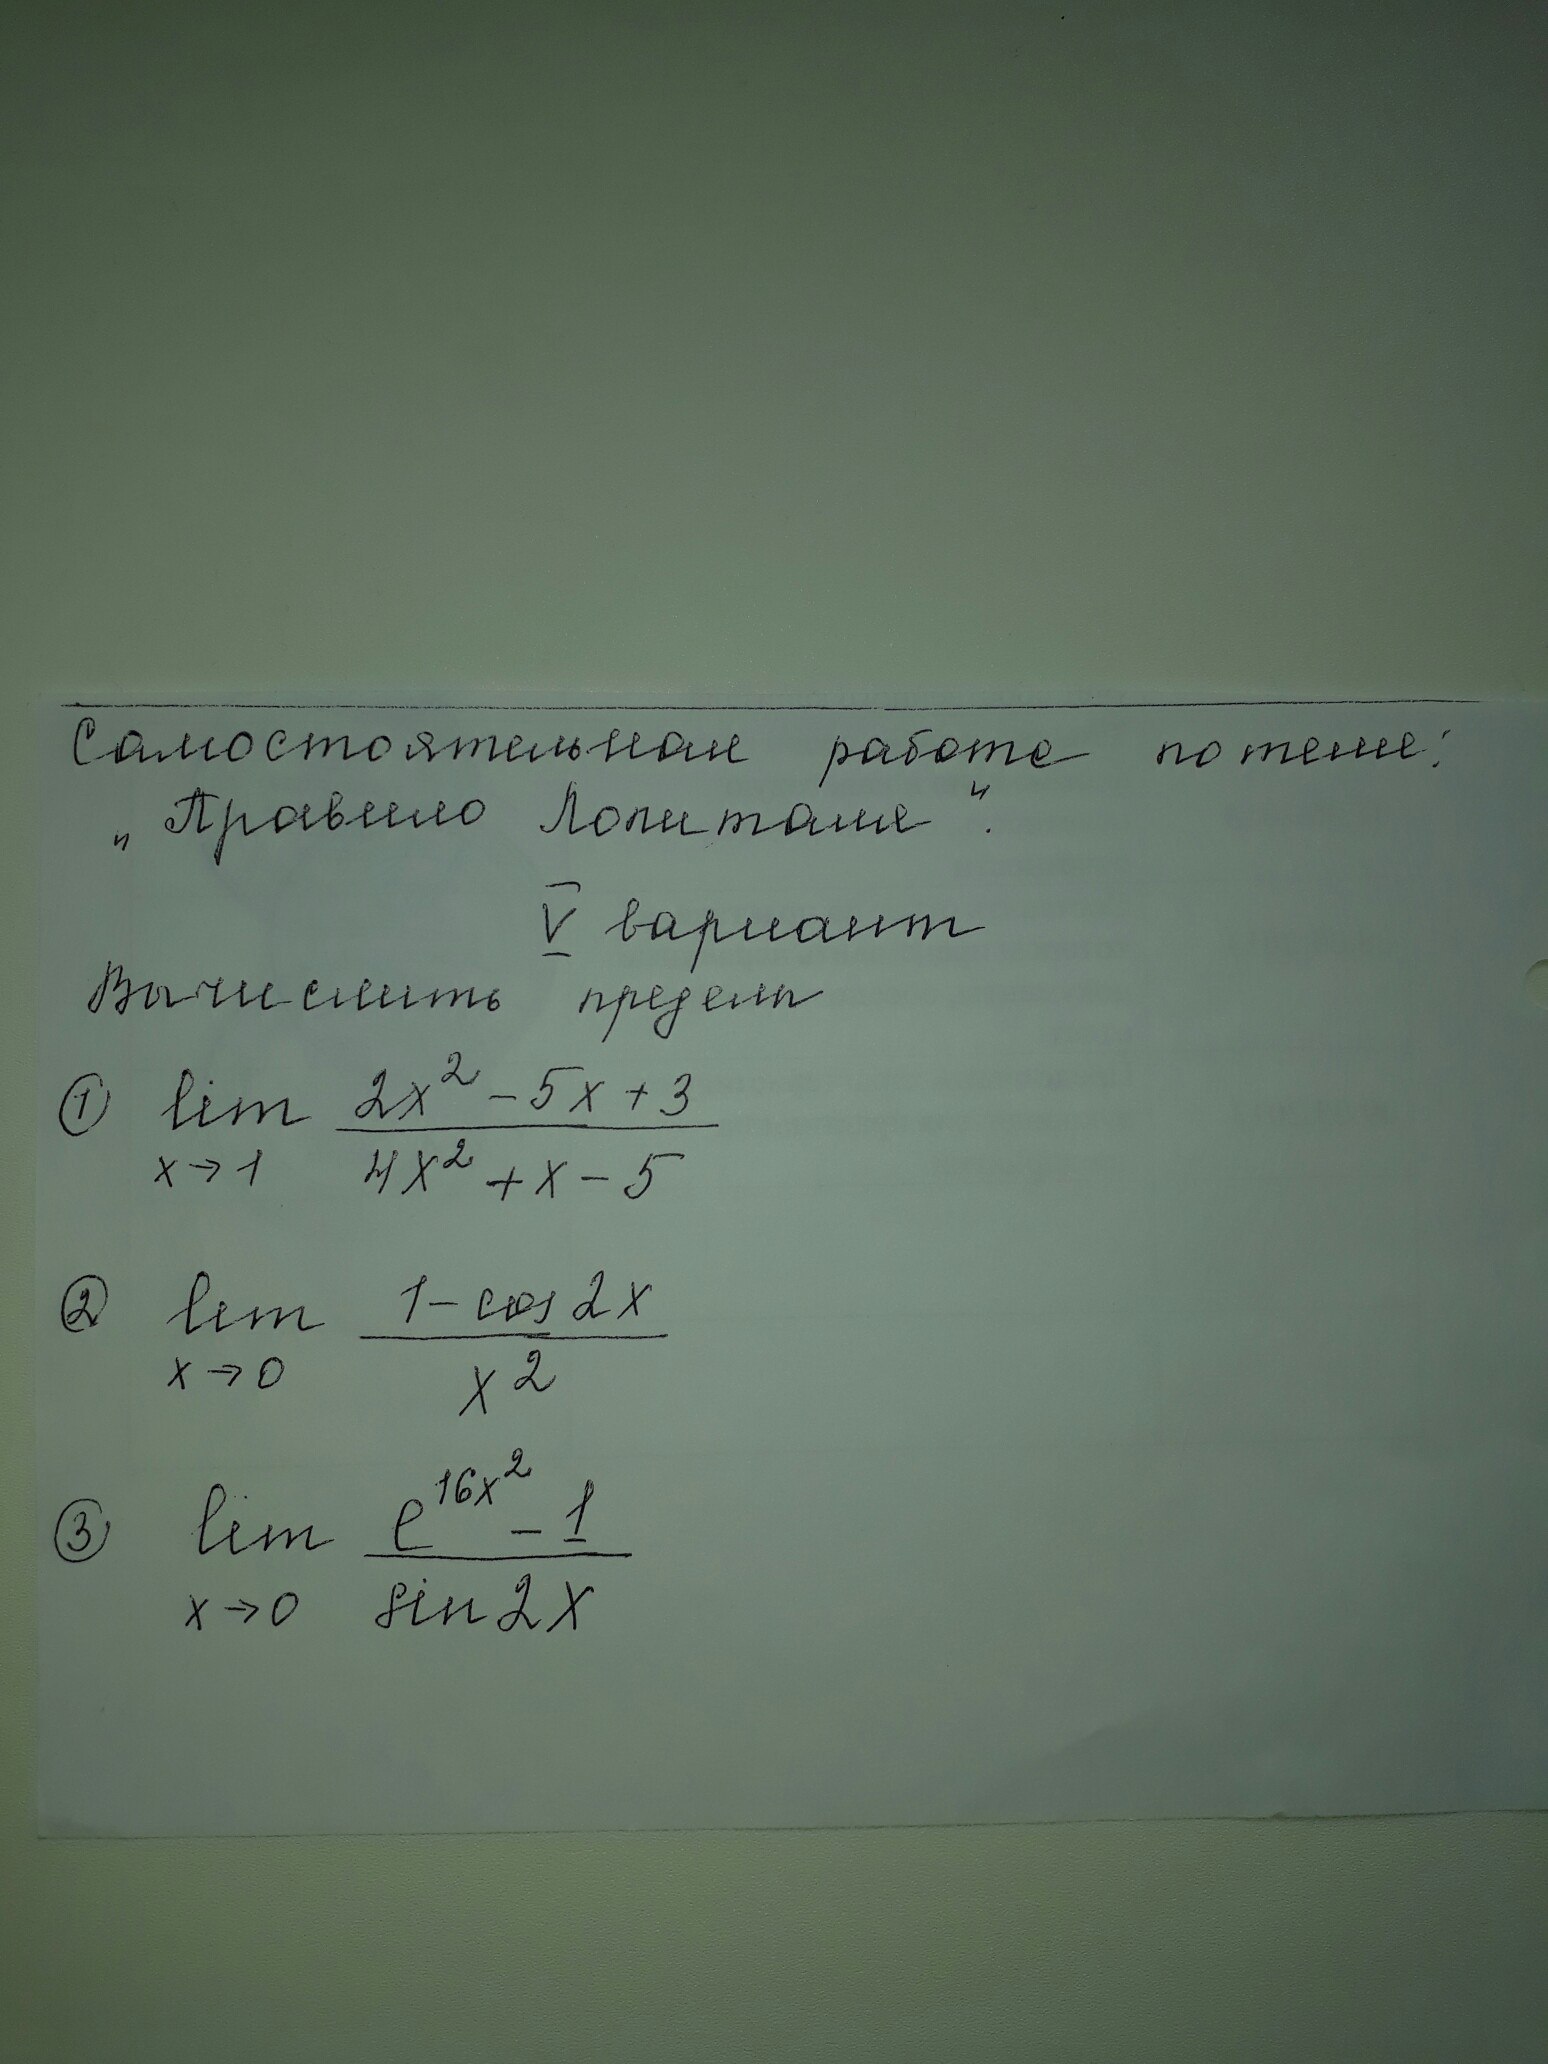 Самостоятельная работа по теме:
„Правило Лопиталя".
V вариант
Вычислить пределы
① lim 2x² - 5x + 3
x→1 4x² + x - 5
② lim 1 - cos 2x
x→0 x²
③ lim e^16x² - 1
x→0 sin 2x